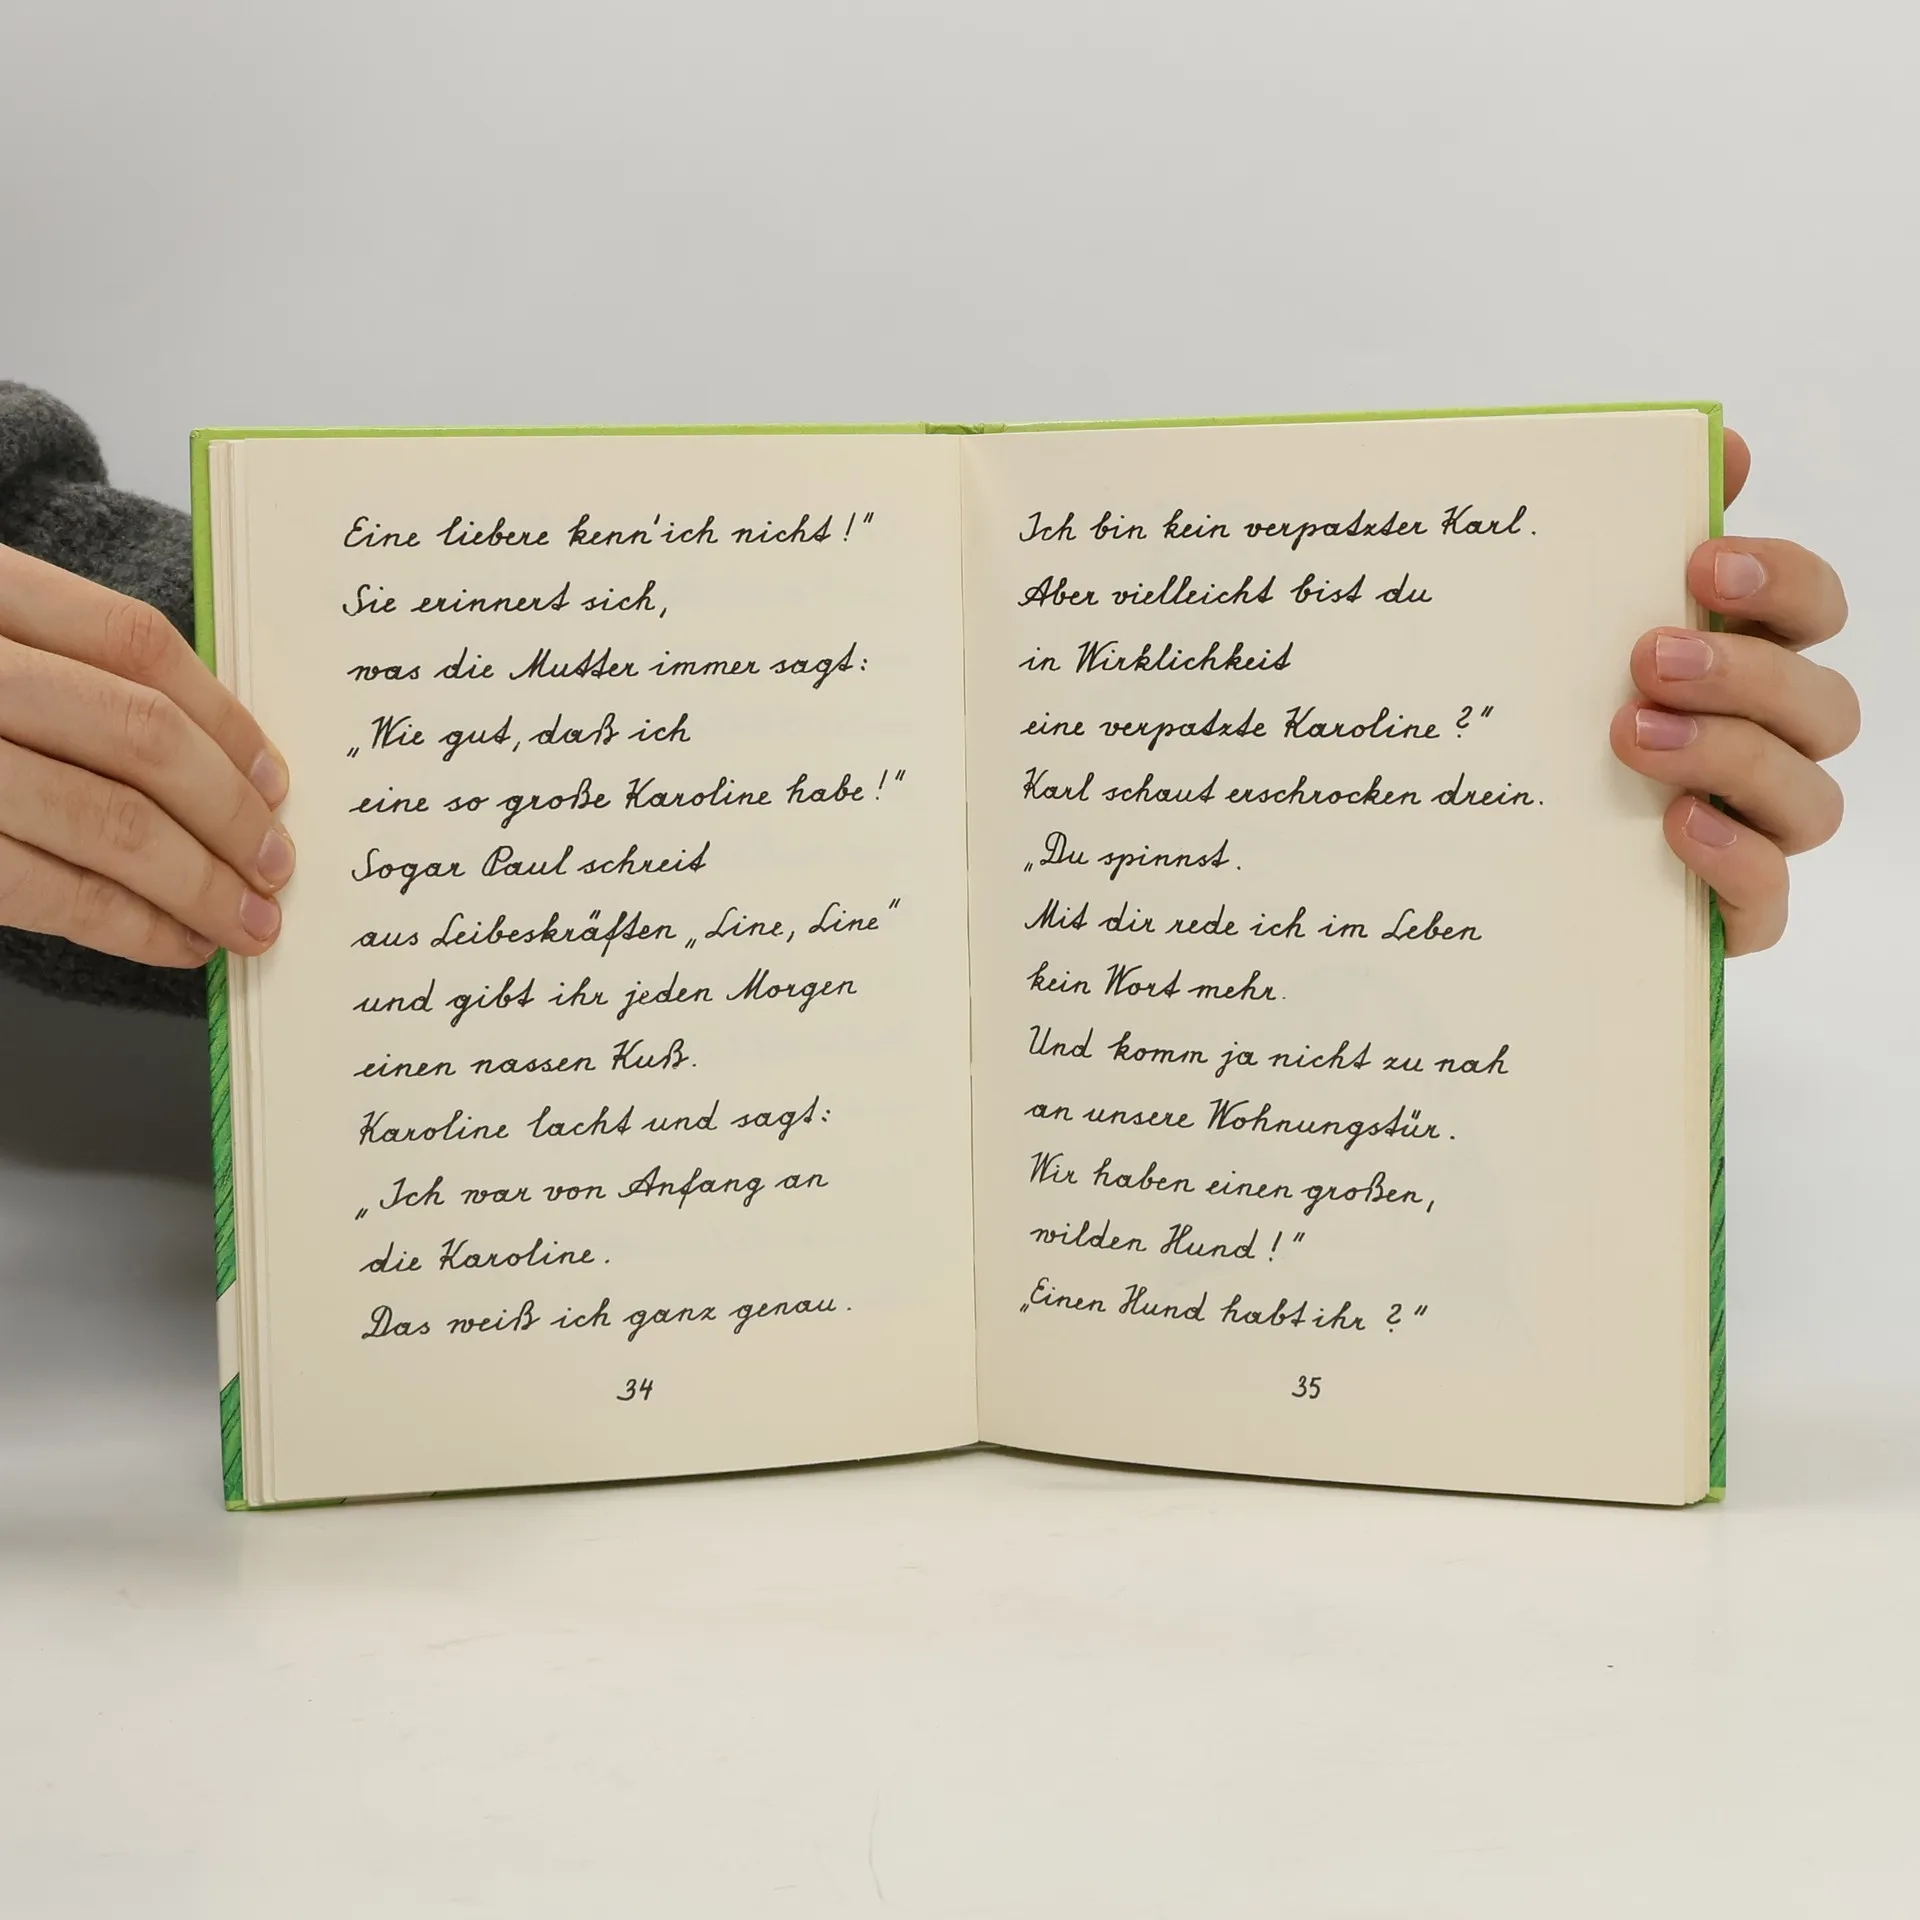 Eine liebere kenn' ich nicht!"
Sie erinnert sich,
was die Mutter immer sagt:
„Wie gut, daß ich
eine so große Karoline habe!"
Sogar Paul schreit
aus Leibeskräften „Line, Line"
und gibt ihr jeden Morgen
einen nassen Kuß.
Karoline lacht und sagt:
„Ich war von Anfang an
die Karoline.
Das weiß ich ganz genau.
34
Ich bin kein verpatzter Karl.
Aber vielleicht bist du
in Wirklichkeit
eine verpatzte Karoline?"
Karl schaut erschrocken drein.
„Du spinnst.
Mit dir rede ich im Leben
kein Wort mehr.
Und komm ja nicht zu nah
an unsere Wohnungstür.
Wir haben einen großen,
wilden Hund!"
„Einen Hund habt ihr?"
35